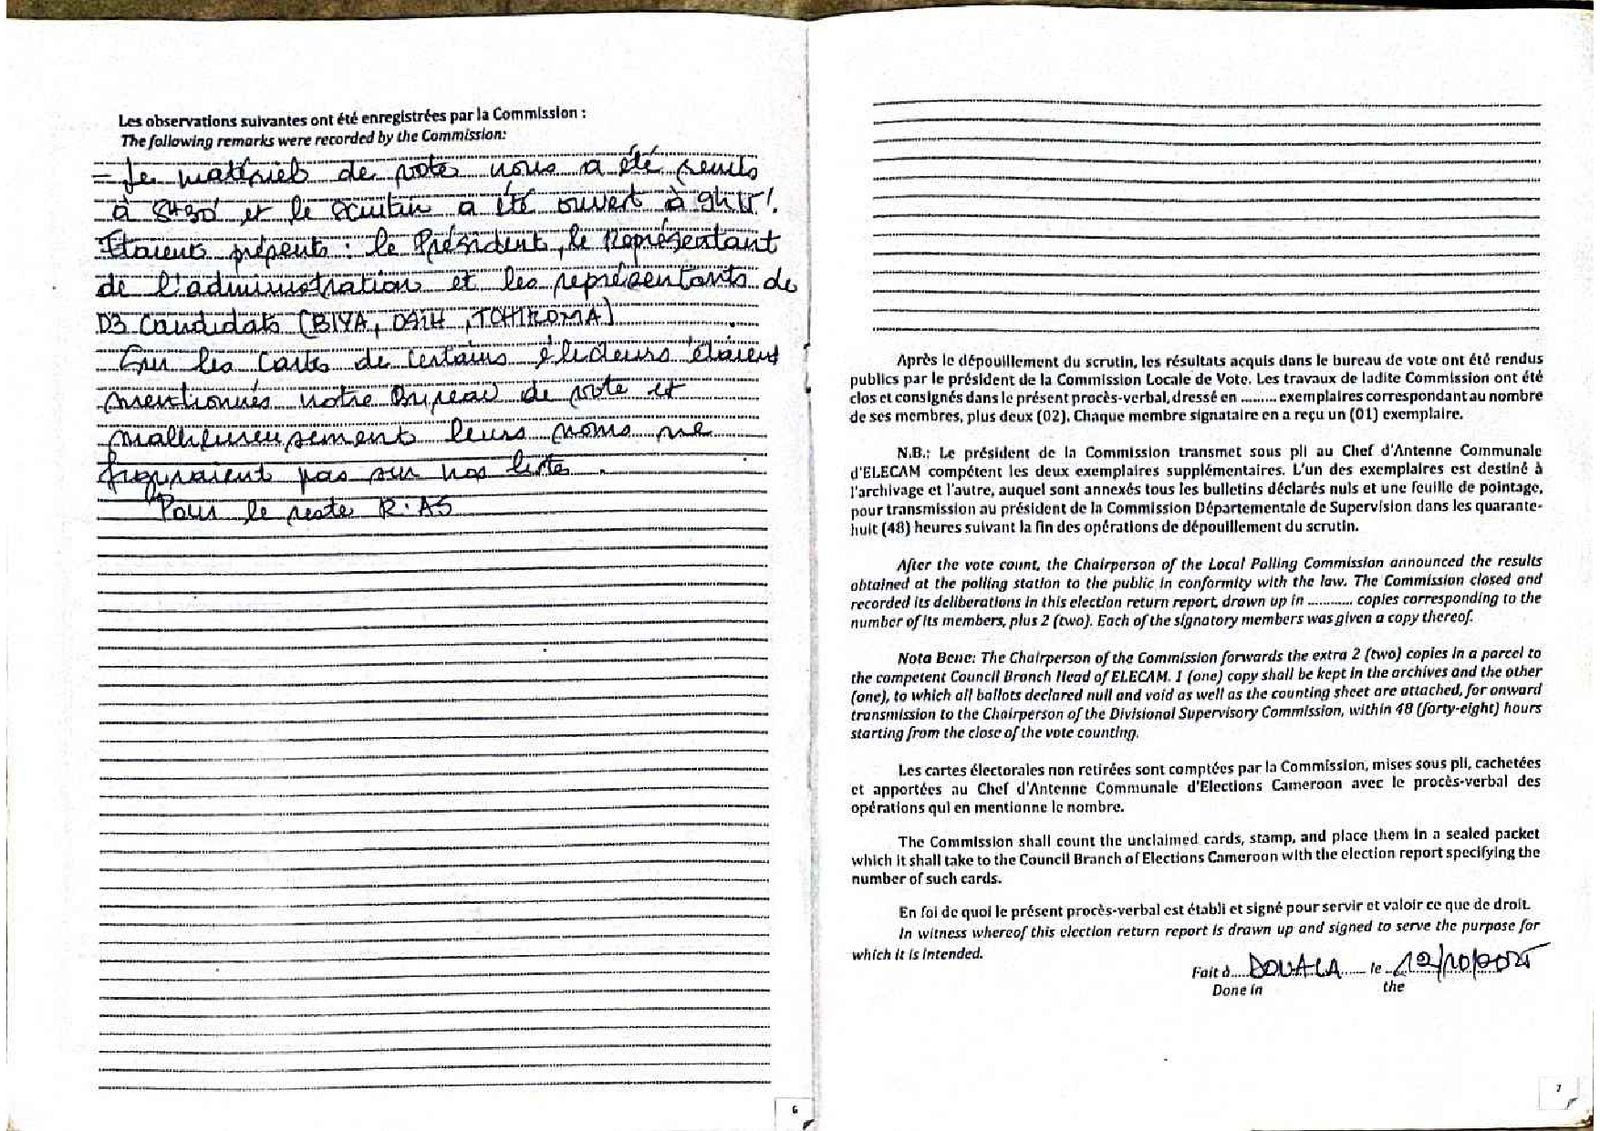 Les observations suivantes ont été enregistrées par la Commission :
The following remarks were recorded by the Commission:
- Le matériel de vote nous a été remis
à 8H30' et le scrutin a été ouvert à 9H15'.
Etaient présents : le Président, le Représentant
de l'administration et les représentants de
03 candidats (BIYA, OSIH, TCHIROMA)
Sur les cartes de certains électeurs étaient
mentionnés notre Bureau de vote et
malheureusement leurs noms ne
figuraient pas sur nos liste.
Pour le reste R.AS
6
Après le dépouillement du scrutin, les résultats acquis dans le bureau de vote ont été rendus
publics par le président de la Commission Locale de Vote. Les travaux de ladite Commission ont été
clos et consignés dans le présent procès-verbal, dressé en ......... exemplaires correspondant au nombre
de ses membres, plus deux (02). Chaque membre signataire en a reçu un (01) exemplaire.
N.B.: Le président de la Commission transmet sous pli au Chef d'Antenne Communale
d'ELECAM compétent les deux exemplaires supplémentaires. L'un des exemplaires est destiné à
l'archivage et l'autre, auquel sont annexés tous les bulletins déclarés nuls et une feuille de pointage,
pour transmission au président de la Commission Départementale de Supervision dans les quarante-
huit (48) heures suivant la fin des opérations de dépouillement du scrutin.
After the vote count, the Chairperson of the Local Polling Commission announced the results
obtained at the polling station to the public in conformity with the law. The Commission closed and
recorded its deliberations in this election return report, drawn up in ........... copies corresponding to the
number of its members, plus 2 (two). Each of the signatory members was given a copy thereof.
Nota Bene: The Chairperson of the Commission forwards the extra 2 (two) copies in a parcel to
the competent Council Branch Head of ELECAM. 1 (one) copy shall be kept in the archives and the other
(one), to which all ballots declared null and void as well as the counting sheet are attached, for onward
transmission to the Chairperson of the Divisional Supervisory Commission, within 48 (forty-eight) hours
starting from the close of the vote counting.
Les cartes électorales non retirées sont comptées par la Commission, mises sous pli, cachetées
et apportées au Chef d'Antenne Communale d'Elections Cameroon avec le procès-verbal des
opérations qui en mentionne le nombre.
The Commission shall count the unclaimed cards, stamp, and place them in a sealed packet
which it shall take to the Council Branch of Elections Cameroon with the election report specifying the
number of such cards.
En foi de quoi le présent procès-verbal est établi et signé pour servir et valoir ce que de droit.
In witness whereof this election return report is drawn up and signed to serve the purpose for
which it is intended.
Fait à DOUALA le 12/10/2025
Done in the
7